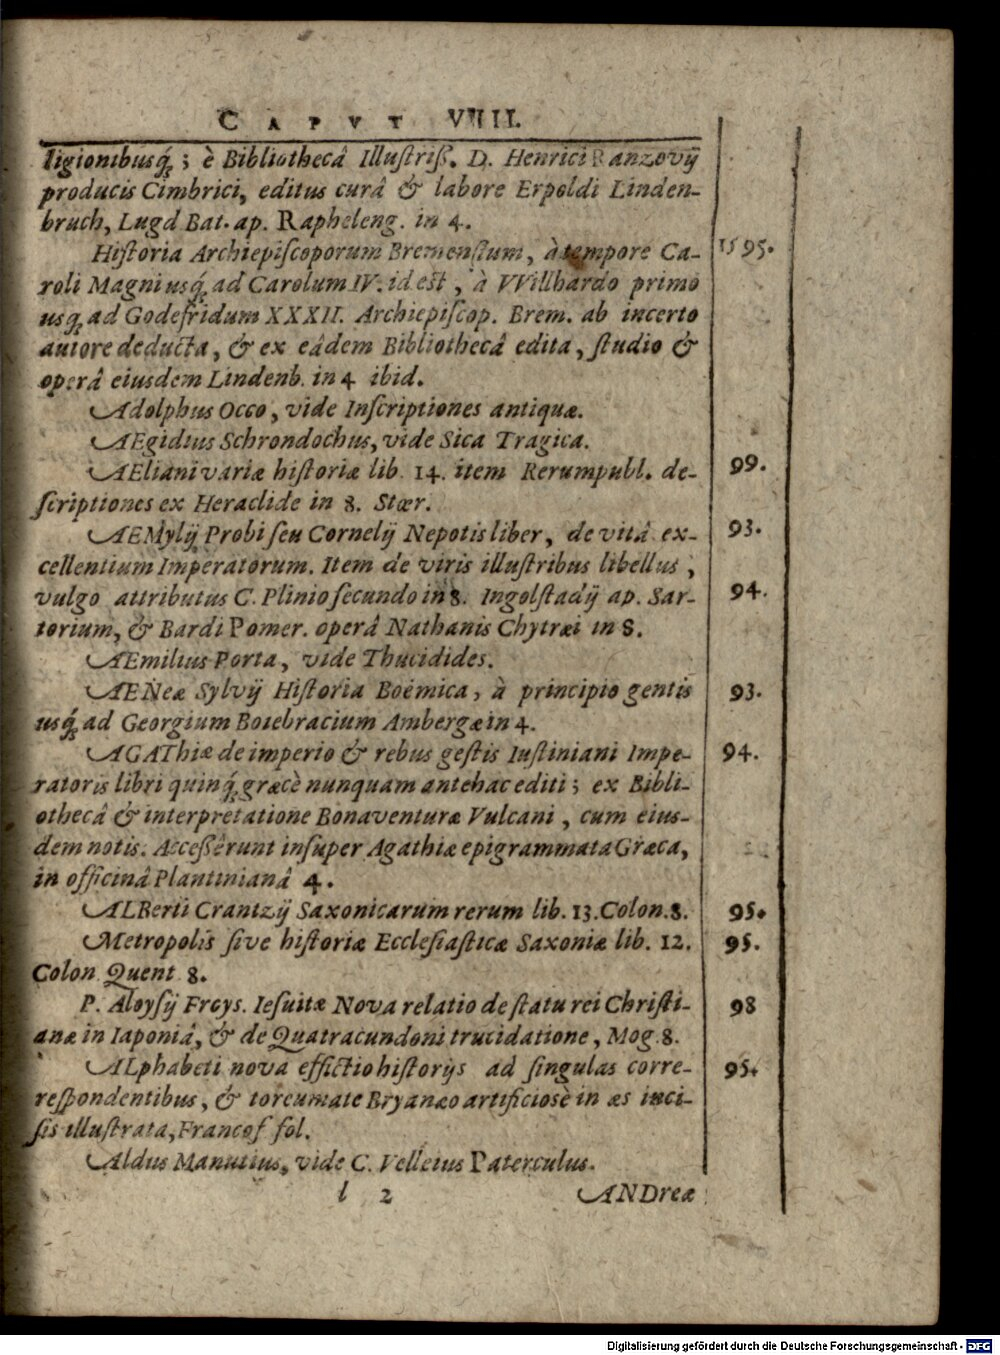 CAPVT VIIII.
ligionibusq́; ; è Bibliothecâ Illustriss. D. Henrici Ranzovij
producis Cimbrici, editus curâ & labore Erpoldi Linden-
bruch, Lugd Bat. ap. Rapheleng. in 4.
Historia Archiepiscoporum Bremensium, à tempore Ca- 1595.
roli Magni usq́; ad Carolum IV. id est, à VVillhardo primo
usq́; ad Godefridum XXXII. Archiepiscop. Brem. ab incerto
autore deducta, & ex eâdem Bibliothecâ edita, studio &
operâ eiusdem Lindenb. in 4 ibid.
Adolphus Occo, vide Inscriptiones antiquæ.
AEgidius Schrondochus, vide Sica Tragica.
AEliani variæ historiæ lib. 14. item Rerumpubl. de- 99.
scriptiones ex Heraclide in 8. Stœr.
AEMylij Probi seu Cornelij Nepotis liber, de vitâ ex- 93.
cellentium Imperatorum. Item de viris illustribus libellus,
vulgo attributus C. Plinio secundo in 8. Ingolstadij ap. Sar- 94.
torium, & Bardi Pomer. operâ Nathanis Chytræi in 8.
AEmilius Porta, vide Thucidides.
AENeæ Sylvij Historia Boëmica, à principio gentis 93.
usq́; ad Georgium Boiebracium Ambergæ in 4.
AGAThiæ de imperio & rebus gestis Iustiniani Impe- 94.
ratoris libri quinq́; græcè nunquam antehac editi; ex Bibli-
othecâ & interpretatione Bonaventuræ Vulcani, cum eius-
dem notis. Accessêrunt insuper Agathiæ epigrammata Græca,
in officinâ Plantinianâ 4.
ALBerti Crantzij Saxonicarum rerum lib. 13. Colon. 8. 95.
Metropolis sive historiæ Ecclesiasticæ Saxoniæ lib. 12. 95.
Colon Quent 8.
P. Aloysij Froys. Iesuitæ Nova relatio de statu rei Christi- 98
anæ in Iaponiâ, & de Quatracundoni trucidatione, Mog. 8.
ALphabeti nova effictio historijs ad singulas corre- 95.
respondentibus, & toreumate Bryanæo artificiosè in æs inci-
sis illustrata, Francof fol.
Aldus Manutius, vide C. Velleius Paterculus.
l 2 ANDreæ
Digitalisierung gefördert durch die Deutsche Forschungsgemeinschaft - DFG